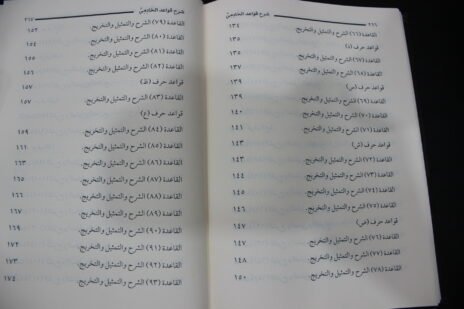 ٢٦٦ شرح قواعد الخادمي
القاعدة (٦٦) الشرح والتمثيل والتخريج. ١٣٤
قواعد حرف (د) ١٣٥
القاعدة (٦٧) الشرح والتمثيل والتخريج. ١٣٥
القاعدة (٦٨) الشرح والتمثيل والتخريج. ١٣٧
قواعد حرف (س) ١٣٩
القاعدة (٦٩) الشرح والتمثيل والتخريج. ١٣٩
القاعدة (٧٠) الشرح والتمثيل والتخريج. ١٤٠
القاعدة (٧١) الشرح والتمثيل والتخريج. ١٤١
قواعد حرف (ش) ١٤٣
القاعدة (٧٢) الشرح والتمثيل والتخريج. ١٤٣
القاعدة (٧٣) الشرح والتمثيل والتخريج. ١٤٤
القاعدة (٧٤) الشرح والتمثيل والتخريج. ١٤٥
القاعدة (٧٥) الشرح والتمثيل والتخريج. ١٤٦
قواعد حرف (ض) ١٤٧
القاعدة (٧٦) الشرح والتمثيل والتخريج. ١٤٧
القاعدة (٧٧) الشرح والتمثيل والتخريج. ١٤٨
القاعدة (٧٨) الشرح والتمثيل والتخريج. ١٥٠
شرح قواعد الخادمي ٢٦٥
القاعدة (٧٩) الشرح والتمثيل والتخريج. ١٥٢
القاعدة (٨٠) الشرح والتمثيل والتخريج. ١٥٤
القاعدة (٨١) الشرح والتمثيل والتخريج. ١٥٥
القاعدة (٨٢) الشرح والتمثيل والتخريج. ١٥٦
قواعد حرف (ظ) ١٥٧
القاعدة (٨٣) الشرح والتمثيل والتخريج. ١٥٧
قواعد حرف (ع)
القاعدة (٨٤) الشرح والتمثيل والتخريج. ١٥٩
القاعدة (٨٥) الشرح والتمثيل والتخريج. ١٦١
القاعدة (٨٦) الشرح والتمثيل والتخريج. ١٦٣
القاعدة (٨٧) الشرح والتمثيل والتخريج. ١٦٥
القاعدة (٨٨) الشرح والتمثيل والتخريج. ١٦٦
القاعدة (٨٩) الشرح والتمثيل والتخريج. ١٦٧
القاعدة (٩٠) الشرح والتمثيل والتخريج. ١٦٩
القاعدة (٩١) الشرح والتمثيل والتخريج. ١٧٢
القاعدة (٩٢) الشرح والتمثيل والتخريج. ١٧٣
القاعدة (٩٣) الشرح والتمثيل والتخريج. ١٧٤